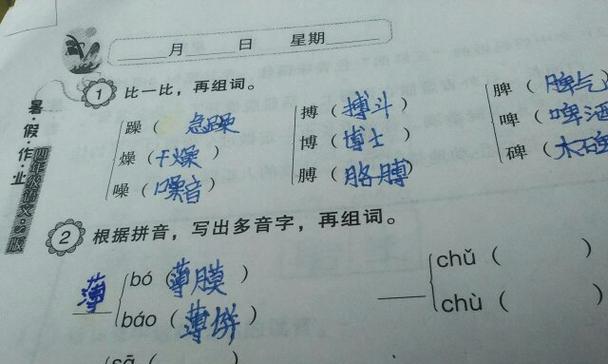 月 日 星期
1 比一比，再组词。
躁（急躁 搏（搏斗） 脾（脾气
燥（干燥） 博（博士） 啤（啤酒
噪（噪音） 膊（胳膊） 碑（木
2 根据拼音，写出多音字，再组词。
薄 bó（薄膜） chǔ（ ）
báo（薄饼） chù（ ）
暑·假·作·业
四年级语文·S版